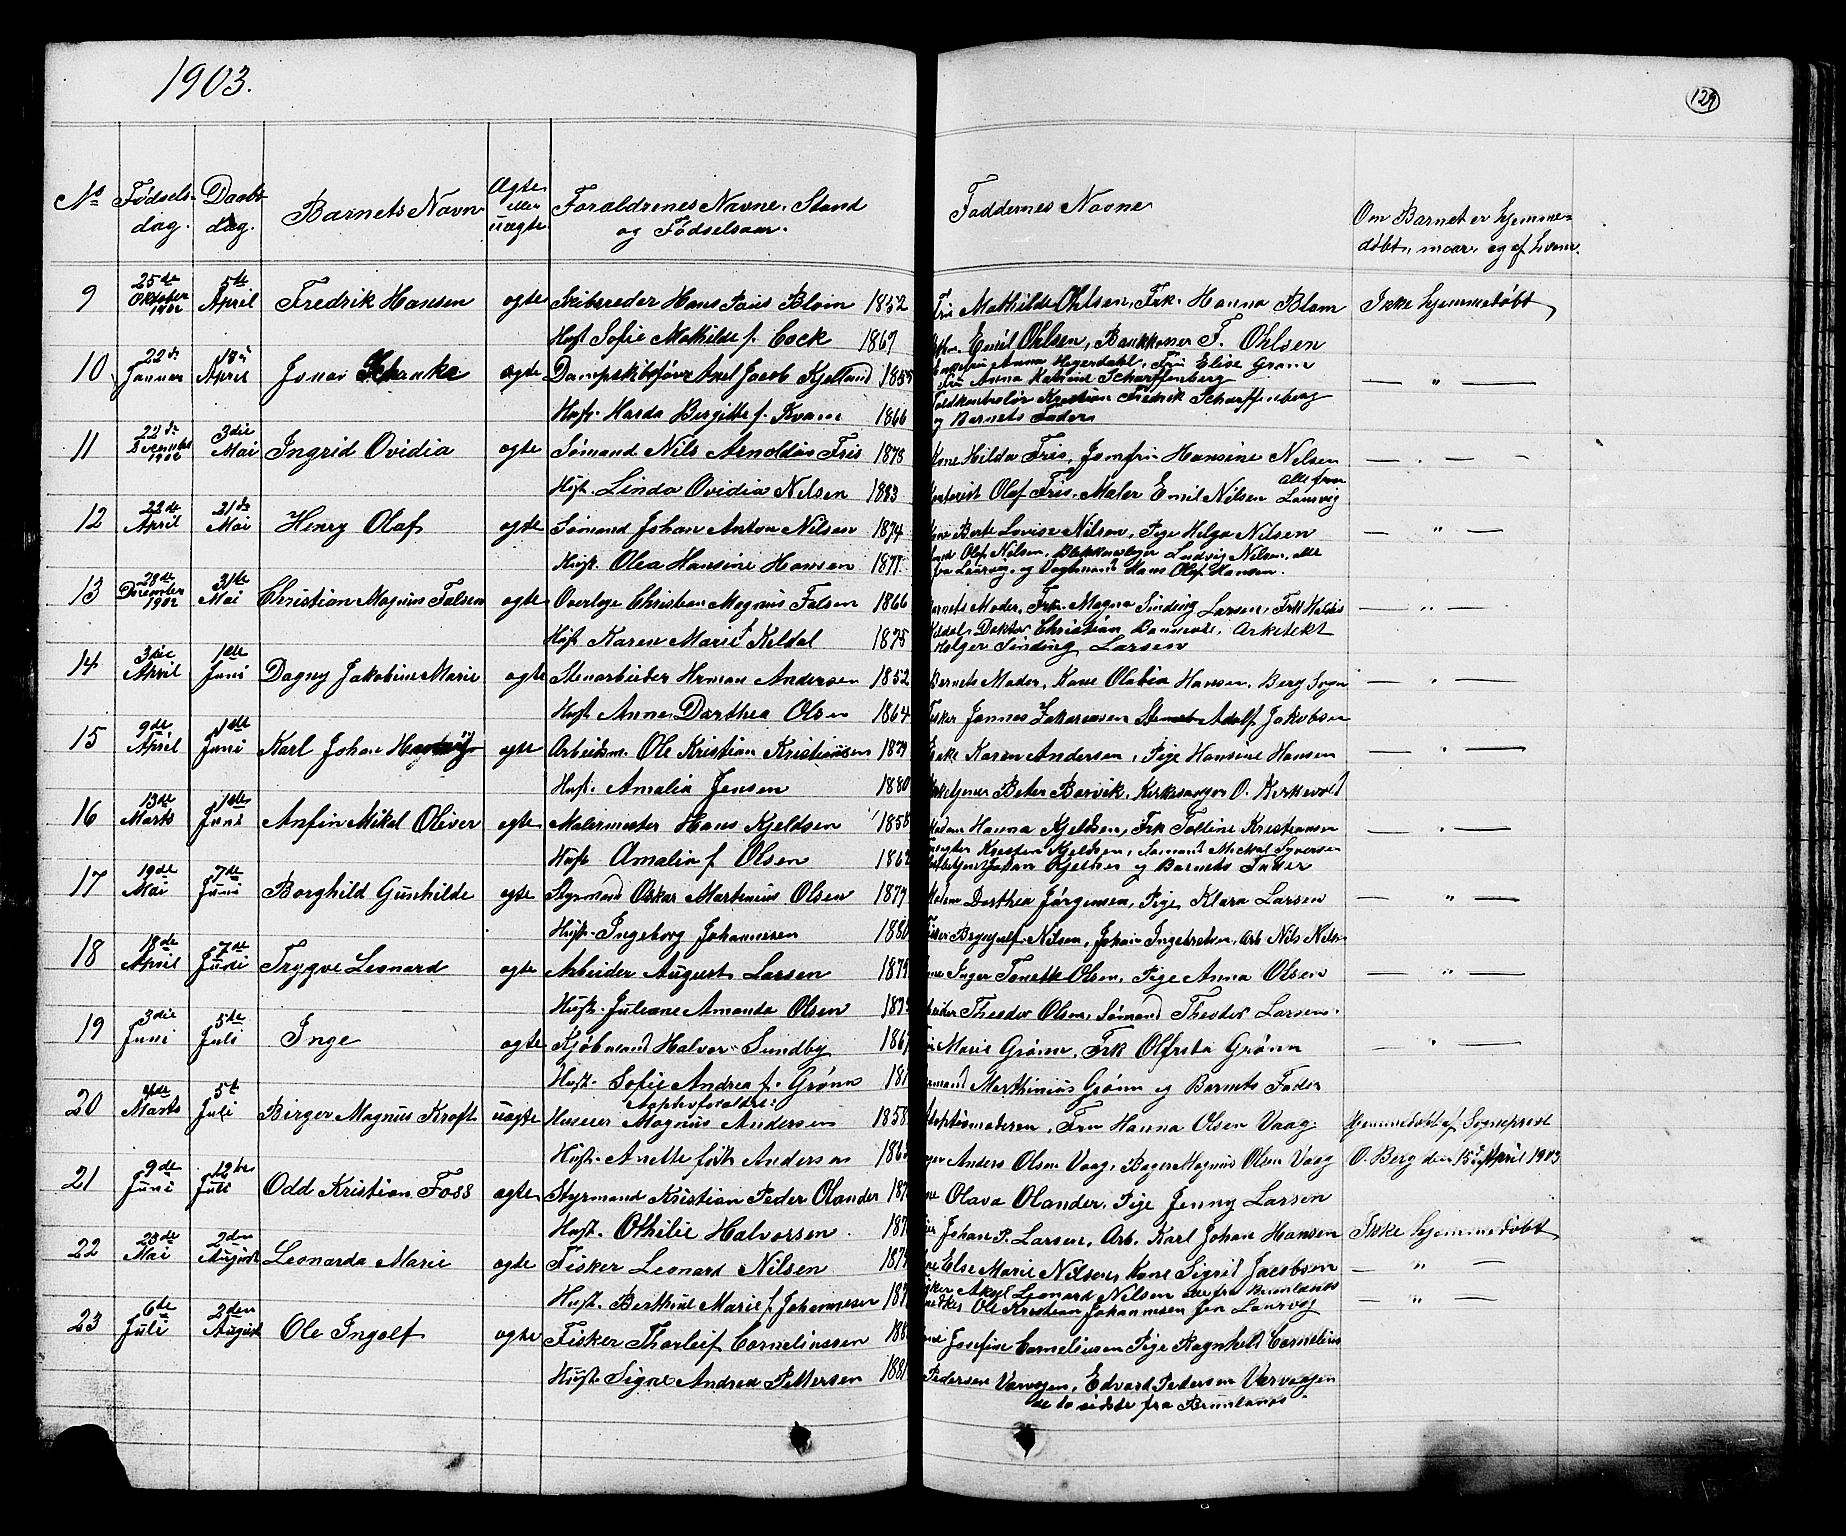 1903.
129
No Fødsels- Daabs- Barnets Navn Ægte Forældrenes Navne, Stand Faddernes Navne Om Barnet er hjemme-
dag. dag. eller uægte og Fødselsaar. døbt, naar, og af hvem.
9 25de Oktober 1902 5te April Fredrik Hansen ægte Skibsreder Hans Paus Blom 1852 Fru Mathilde Ohlsen, Frk. Hanna Blom Ikke hjemmedøbt
Hust Sofie Mathilde f. Cock 1867 Emil Ohlsen, F. Ohlsen
10 22de Januar April Jonas ægte Dampskibsfører Axel Jacob Kjelland Anna Heyerdahl, Fru Elise Gram — " —
Fru Anna Katrine Scharffenberg
Hust. Harda Bergitte f. Kvam 1866 Toldkontrolør Kristian Fredrik Scharffenberg
og Barnets Fader
11 22de 3die Mai Ingrid Ovidia ægte Sømand Nils Arnoldus Friis 1878 Kone Hilda Friis, Jomfru Hansine Nelsen — " —
Hust. Linda Ovidia Nilsen 1883 Olaf Friis, Maler Emil Nilsen alle fra Laurvig
12 22de April 21de Mai Henry Olaf ægte Sømand Johan Anton Nilsen 1874 Berte Lovise Nilsen, Pige Helga Nilsen — " —
Olaf Nilsen, Ludvig Nilsen, alle
Hust. Olea Hansine Hansen 1877 fra Laurvig, og Vagtmand Hans Olaf Hansen.
13 28de December 1902 31te Mai Christian Magnus Falsen ægte Overlæge Christian Magnus Falsen 1866 Barnets Moder, Frk. Magna Sinding Larsen, Frk — " —
Keldal, Doktor Christian Arkitekt
Hust Karen Marie f Keldal 1875 Holger Sinding Larsen
14 3die April 1ste Juni Dagny Jakobine Marie ægte Stenarbieder Herman Andersen 1852 Barnets Moder, Kone Olabia Hansen, Berg Sogn — " —
Hust Anne Dorthea Olsen 1864 Fisker Jonnas Zakariasen Adolf Jakobsen
15 9de April 1ste Juni Karl Johan ægte Arbeidsm. Ole Kristian Kristiansen Enke Karen Andersen, Pige Hansine Hansen — " —
Hust. Amalia Jensen 1880 Kirketjener Peter Barvik, Kirkesanger O. Kirkevold
16 13de Marts 1ste Juni Anfin Mikal Oliver ægte Malermester Hans Kjeldsen 1858 Madam Hanna Kjeldsen, Frk Toltine Kristiansen — " —
Kjeldsen, Sømand Mickal Syversen
Hust Amalia f Olsen Johan Kjeldsen og Barnets Fader
17 19de Mai 7de Juni Borghild Gunhilde ægte Styrmand Oskar Martinius Olsen 1879 Madam Dorthea Jørgensen, Pige Klara Larsen — " —
Hust. Ingeborg Johannesen 1880 Fisker Nilsen, Johan Ingebretsen, Arb Nils Nils
18 18de April 7de Juni Trygve Leonard ægte Arbeider August Larsen 1879 Inger Tonette Olsen, Pige Anna Olsen — " —
Hust. Juliane Amanda Olsen Theodor Olsen, Sømand Theodor Larsen
19 3die Juni 5te Juli Inge ægte Kjøbmand Halvor Sundby Marie Grønn, Frk Olfrida Grønn — " —
Hust. Sofie Andrea f. Grønn Marthinius Grønn og Barnets Fader
20 Marts 5t Juli Birger Magnus Kroft uægte Adoptivforældre: Huseier Magnus Andersen 1858 Adoptivmoderen, Fru Hanna Olsen Vaag Hjemmedøbt af Sogneprest
Hust. Anette født Andersen Anders Olsen Vaag, Bager Magnus Olsen Vaag O. Berg den 15de April 1903
21 9de Juni 12te Juli Odd Kristian Foss ægte Styrmand Kristian Peder Olander Olava Olander, Pige Jenny Larsen
Hust. Othilie Halvorsen Johan P. Larsen, Arb. Karl Johan Hansen Ikke hjemmedøbt
22 23de Mai 2den August Leonarda Marie ægte Fisker Leonard Nilsen Else Marie Nilsen, Kone Sigrid Jacobsen — " —
Leonard Nilsen alle fra Brunlanæs
Hust. Berthine Marie f Johannesen Ole Kristian Johannesen fra Laurvig — " —
23 6te Juli 2den August Ole Ingolf ægte Fisker Thorleif Corneliussen Josefine Corneliusen Pige Ragnhild Cornelius
Hust. Signe Andrea Pettersen 1881 Pedersen Varvagen, Edvard Pedersen Varvagen
de to sidste fra Brunlanæs